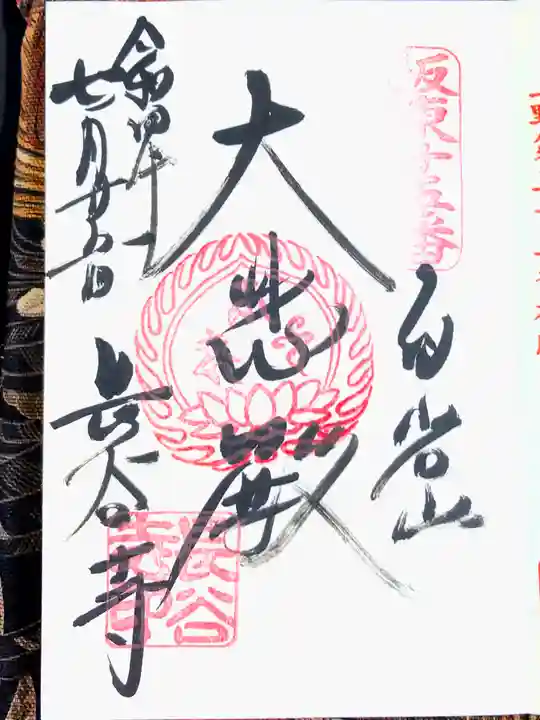 坂東十五番
白岩山
大悲殿
令和四年
七月廿六日
長谷寺
長谷
寺印